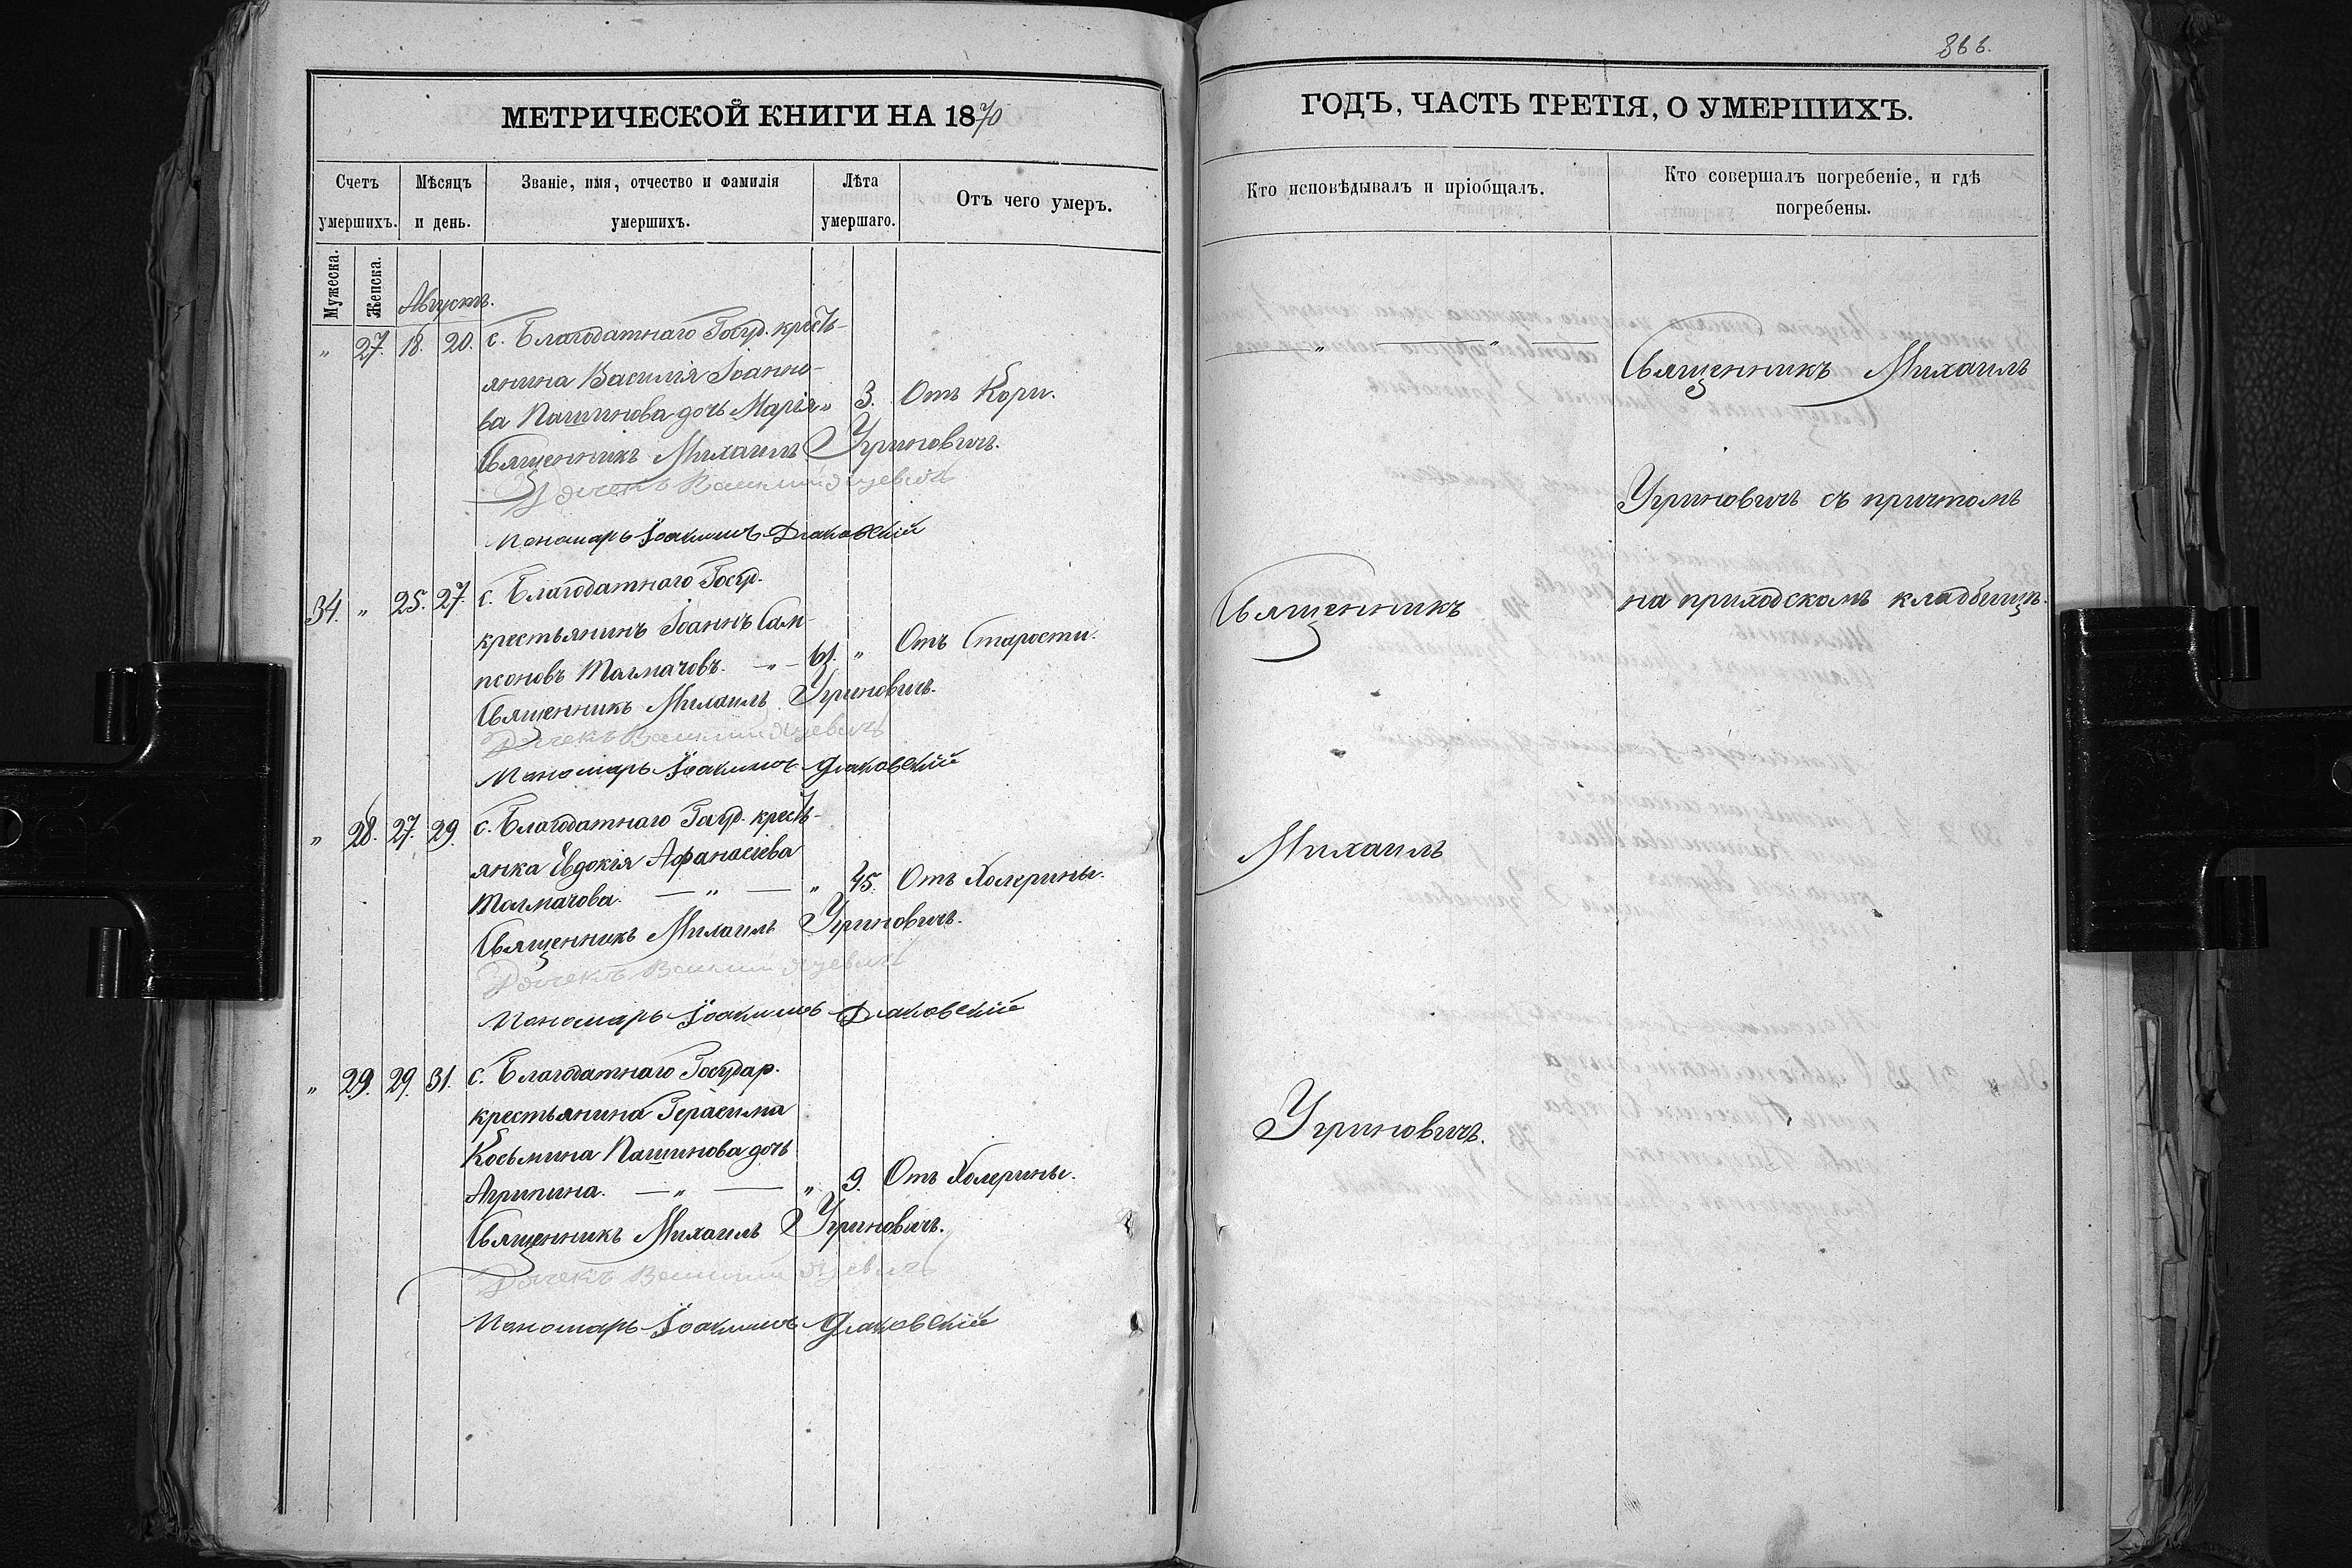 866.
МЕТРИЧЕСКОЙ КНИГИ НА 1870
ГОДЪ, ЧАСТЬ ТРЕТІЯ, О УМЕРШИХЪ.
Счетъ умершихъ.
Мѣсяцъ и день.
Званіе, имя, отчество и фамилія умершихъ.
Лѣта умершаго.
Отъ чего умеръ.
Кто исповѣдывалъ и пріобщалъ.
Кто совершалъ погребеніе, и гдѣ погребены.
Мужеска.
Женска.
Августъ.
„ 27. 18. 20. с. Благодатнаго Госуд. кресть-
янина Василія Іоанно-
ва Пашинова дочь Марія „ 3. Отъ Кори.
Священникъ Михаилъ Угриновичъ.
Дячекъ
Пономарь Іоакимъ Дьаковскій
34. „ 25. 27. с. Благодатнаго Госуд.
крестьянинъ Іоаннъ Сам-
псоновъ Толмачовъ. — „ — 61. „ Отъ Старости.
Священникъ Михаилъ Угриновичъ.
Дячекъ
Пономарь Іоакимъ Дьаковскій
„ 28. 27. 29. с. Благодатнаго Госуд. кресть-
янка Евдокія Афанасиева
Толмачова. — „ — „ 45. Отъ Холерины.
Священникъ Михаилъ Угриновичъ.
Дячекъ
Пономарь Іоакимъ Дьаковскій
„ 29. 29. 31. с. Благодатнаго Государ.
крестьянина Герасима
Косьмина Пашинова дочь
Агрипина. — „ — „ 9. Отъ Холерины.
Священникъ Михаилъ Угриновичъ.
Дячекъ
Пономарь Іоакимъ Дьаковскій
— „ — „ —
Священникъ
Михаилъ
Угриновичъ.
Священникъ Михаилъ
Угриновичъ съ причтомъ
на приходскомъ кладбищѣ.